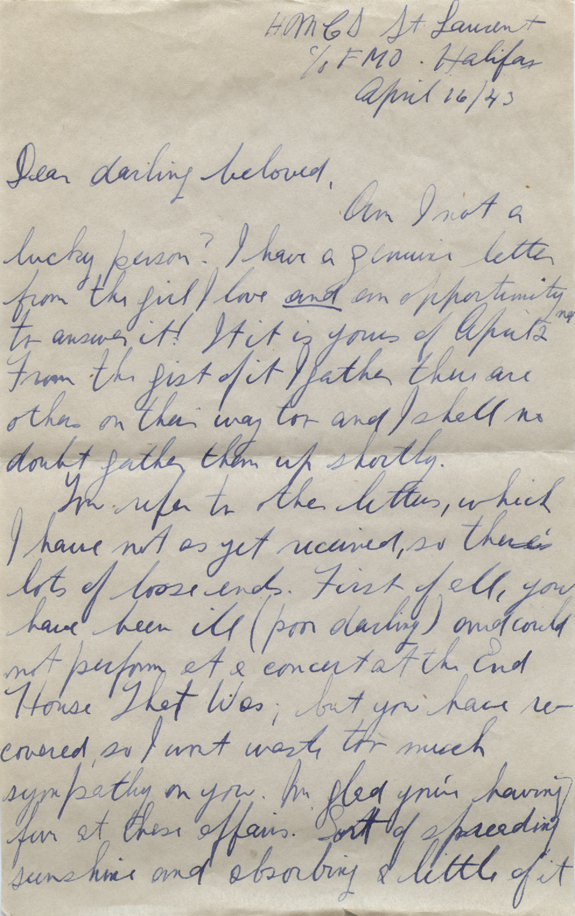 HMCS St Laurent
c/o FMO. Halifax
April 16/43
Dear darling beloved,
Am I not a
lucky person? I have a genuine letter
from the girl I love and an opportunity
to answer it! It is yours of April 2nd
From the gist of it I gather there are
others on their way too and I shall no
doubt gather them up shortly.
You refer to other letters, which
I have not as yet received, so there's
lots of loose ends. First of all, you
have been ill (poor darling) and could
not perform at a concert at the End
House That Was; but you have re-
covered, so I wont waste too much
sympathy on you. I'm glad you're having
fun at these affairs. Sort of spreading
sunshine and absorbing a little of it